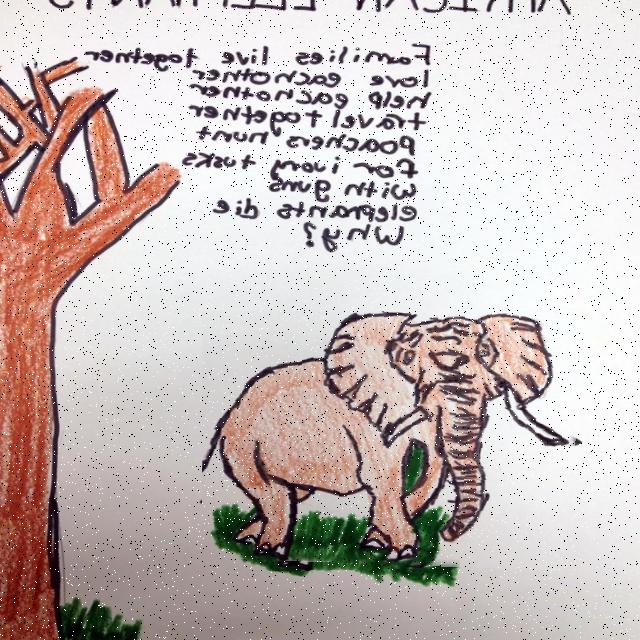 AFRICAN ELEPHANTS
Families live together
love eachother
help eachother
travel together
poachers hunt
for ivory tusks
with guns
elephants die
Why?